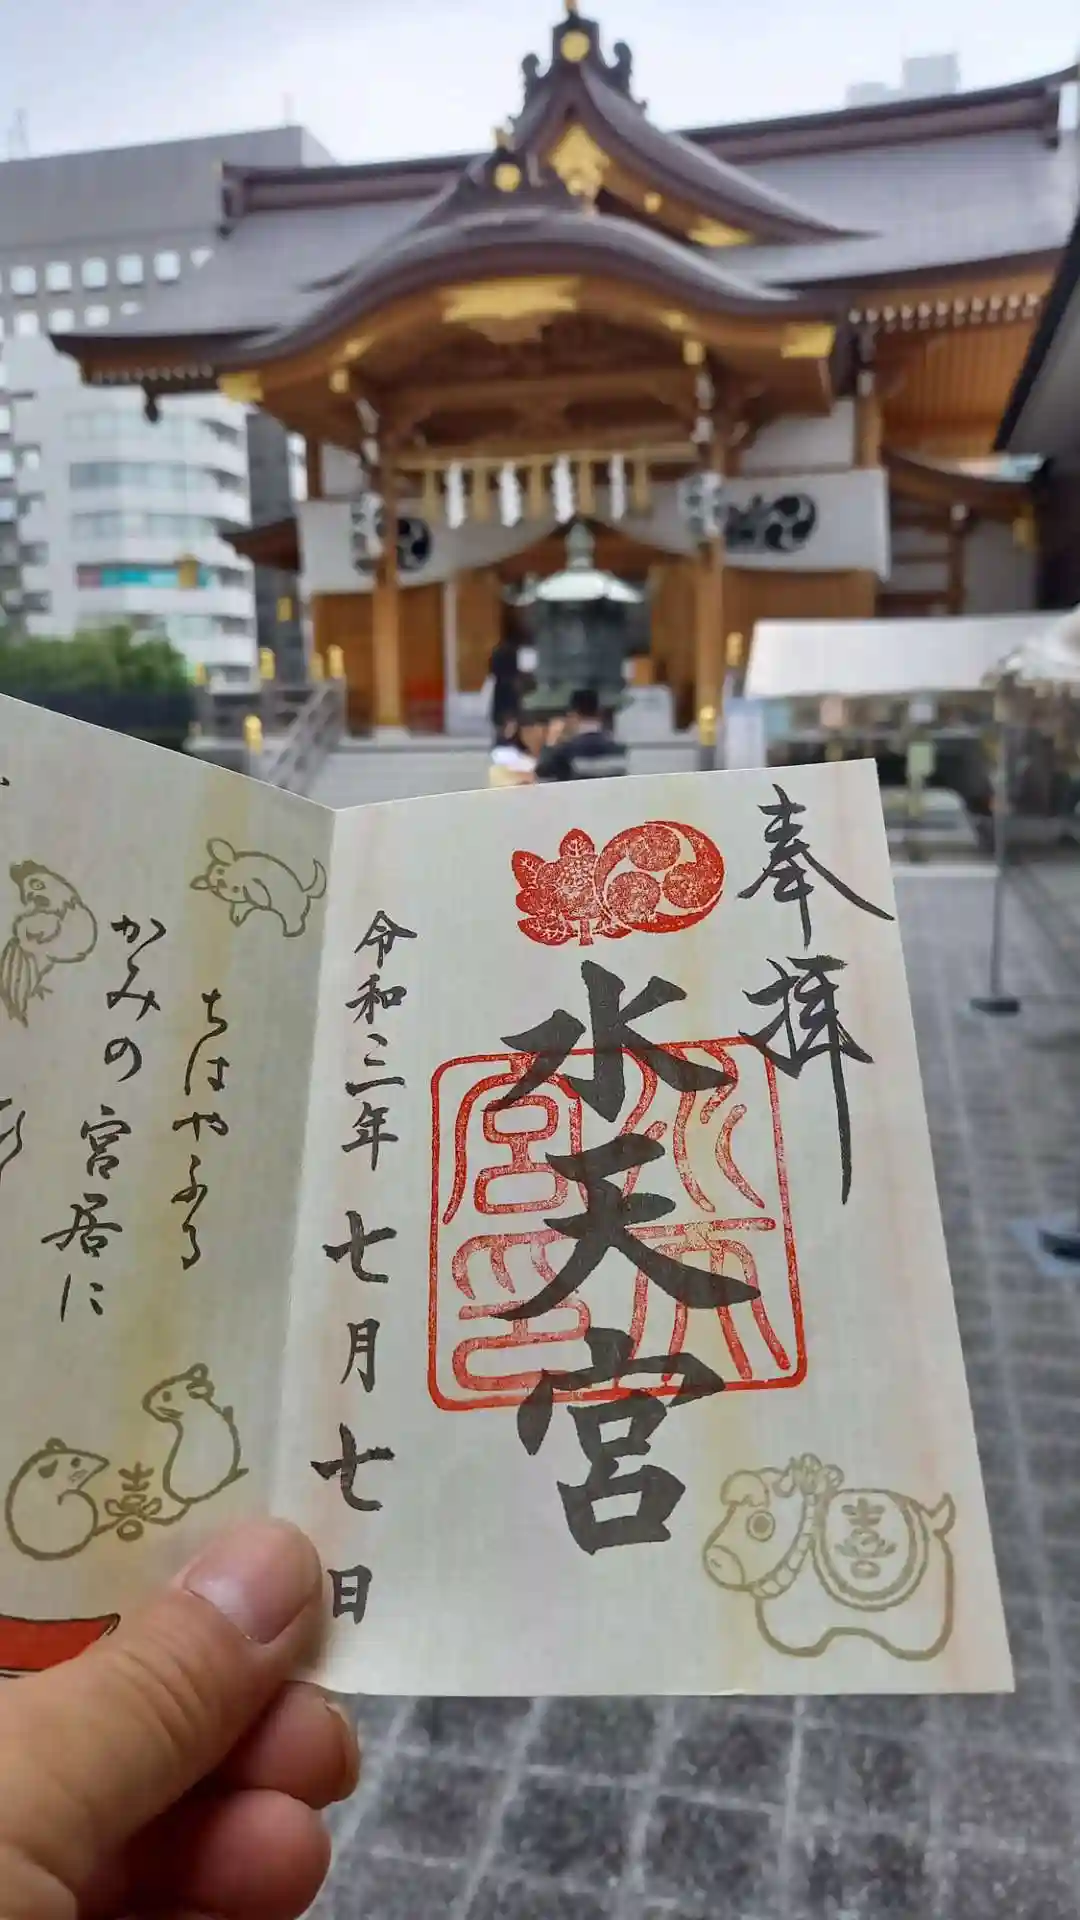 奉拝
水天宮
令和三年七月七日
ちはやふる
かみの宮居に
喜
喜